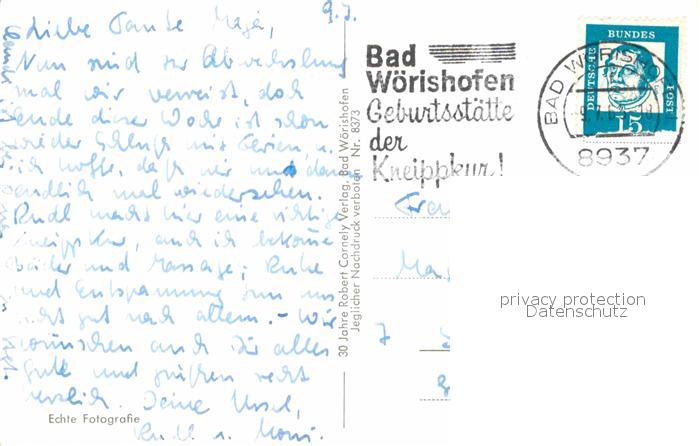 9.7.
Liebe Tante Maja,
Nun sind zur Abwechslung
mal wir verreist, doch
Ende dieser Woche ist schon
wieder Schluß mit Ferien, u.
ich hoffe, daß wir uns dann
endlich mal wiedersehen.
Rudl macht hier eine richtige
Kneippkur, auch ich bekomme
Bäder und Massage; Ruhe
und Entspannung tun uns
recht gut nach allem. - Wir
wünschen auch Dir alles
Gute und grüßen recht
herzlich. Deine Ursel,
Rudl u.
Echte Fotografie
30 Jahre Robert Cornely Verlag, Bad Wörishofen
Jeglicher Nachdruck verboten Nr. 8373
Bad
Wörishofen
Geburtsstätte
der
Kneippkur!
DEUTSCHE
BUNDES
POST
15
BAD WÖRISHOFEN
8937
privacy protection
Datenschutz